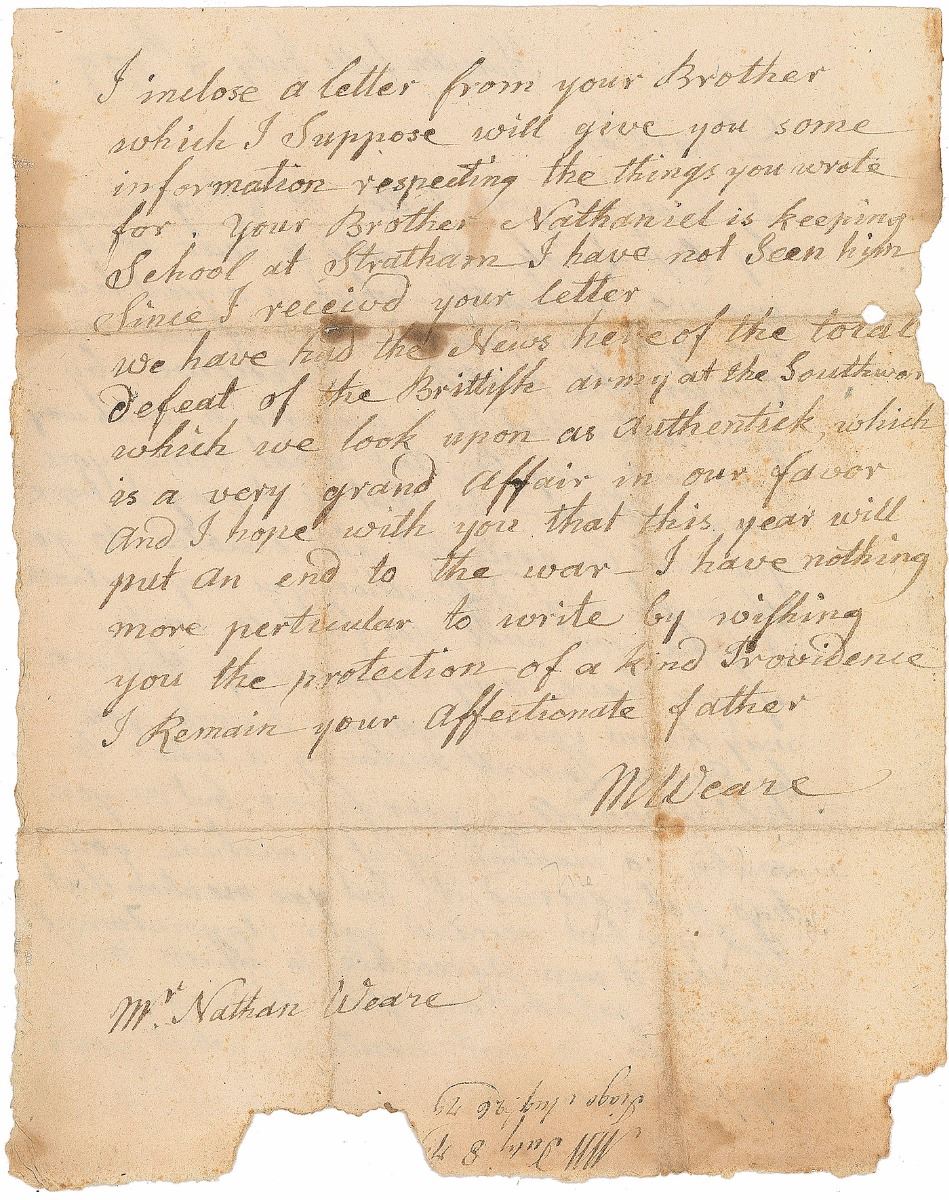 I inclose a letter from your Brother
which I Suppose will give you some
information respecting the things you wrote
for. Your Brother Nathaniel is keeping
School at Stratham I have not Seen him
Since I receivd your letter
we have had the News here of the total
defeat of the Brittish army at the Southward
which we look upon as Authentick, which
is a very grand Affair in our favor
And I hope with you that this year will
put an end to the war – I have nothing
more perticular to write by wishing
you the protection of a kind Providence
I Remain your Affectionate father
MWeare
Mr. Nathan Weare
July 8